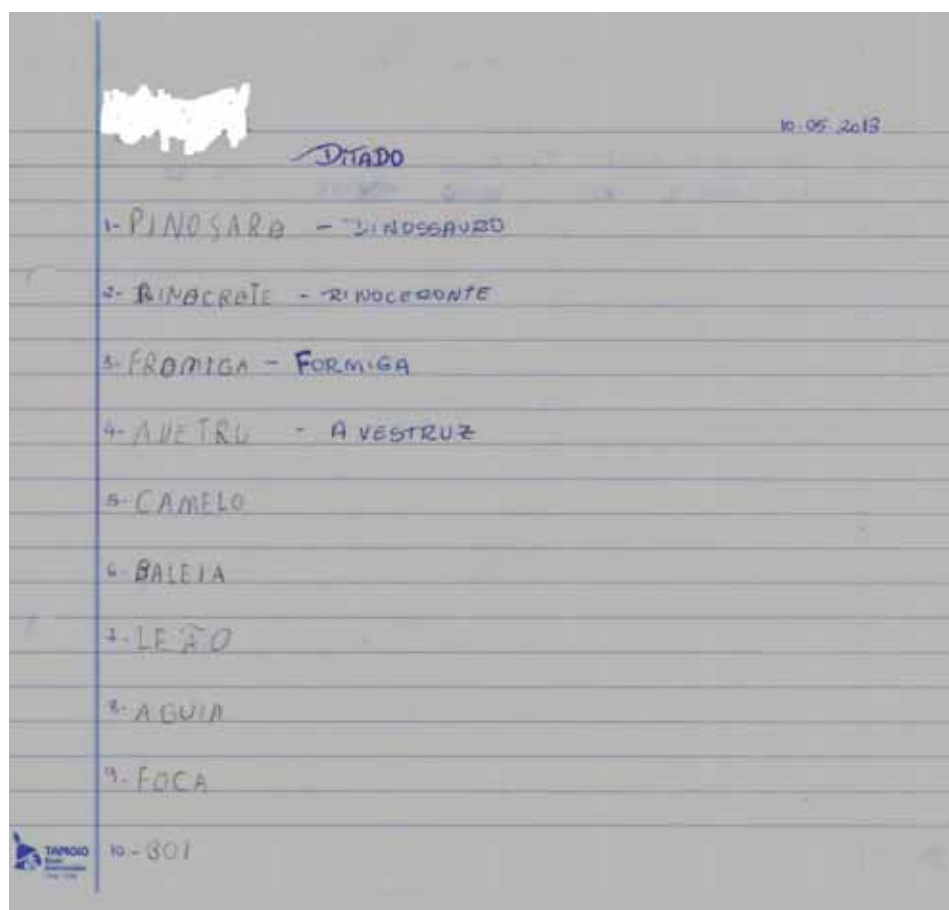 10.05.2013
DITADO
1- PINOSARO - DINOSSAURO
2- RINOCROTE - RINOCERONTE
3- FROMIGA - FORMIGA
4- AVETRU - AVESTRUZ
5- CAMELO
6- BALEIA
7- LEÃO
8- AGUIA
9- FOCA
TAMOIO
10.- BOI